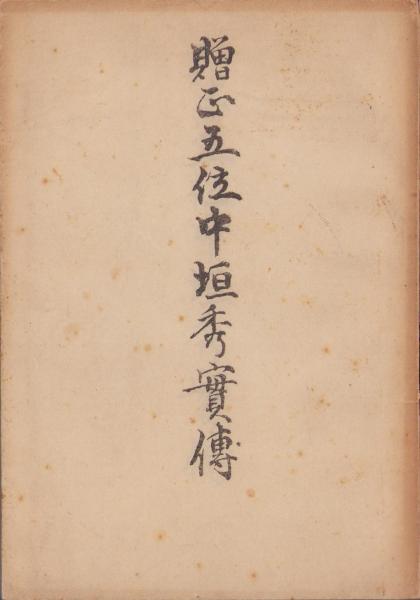 贈正五位中垣秀實傳